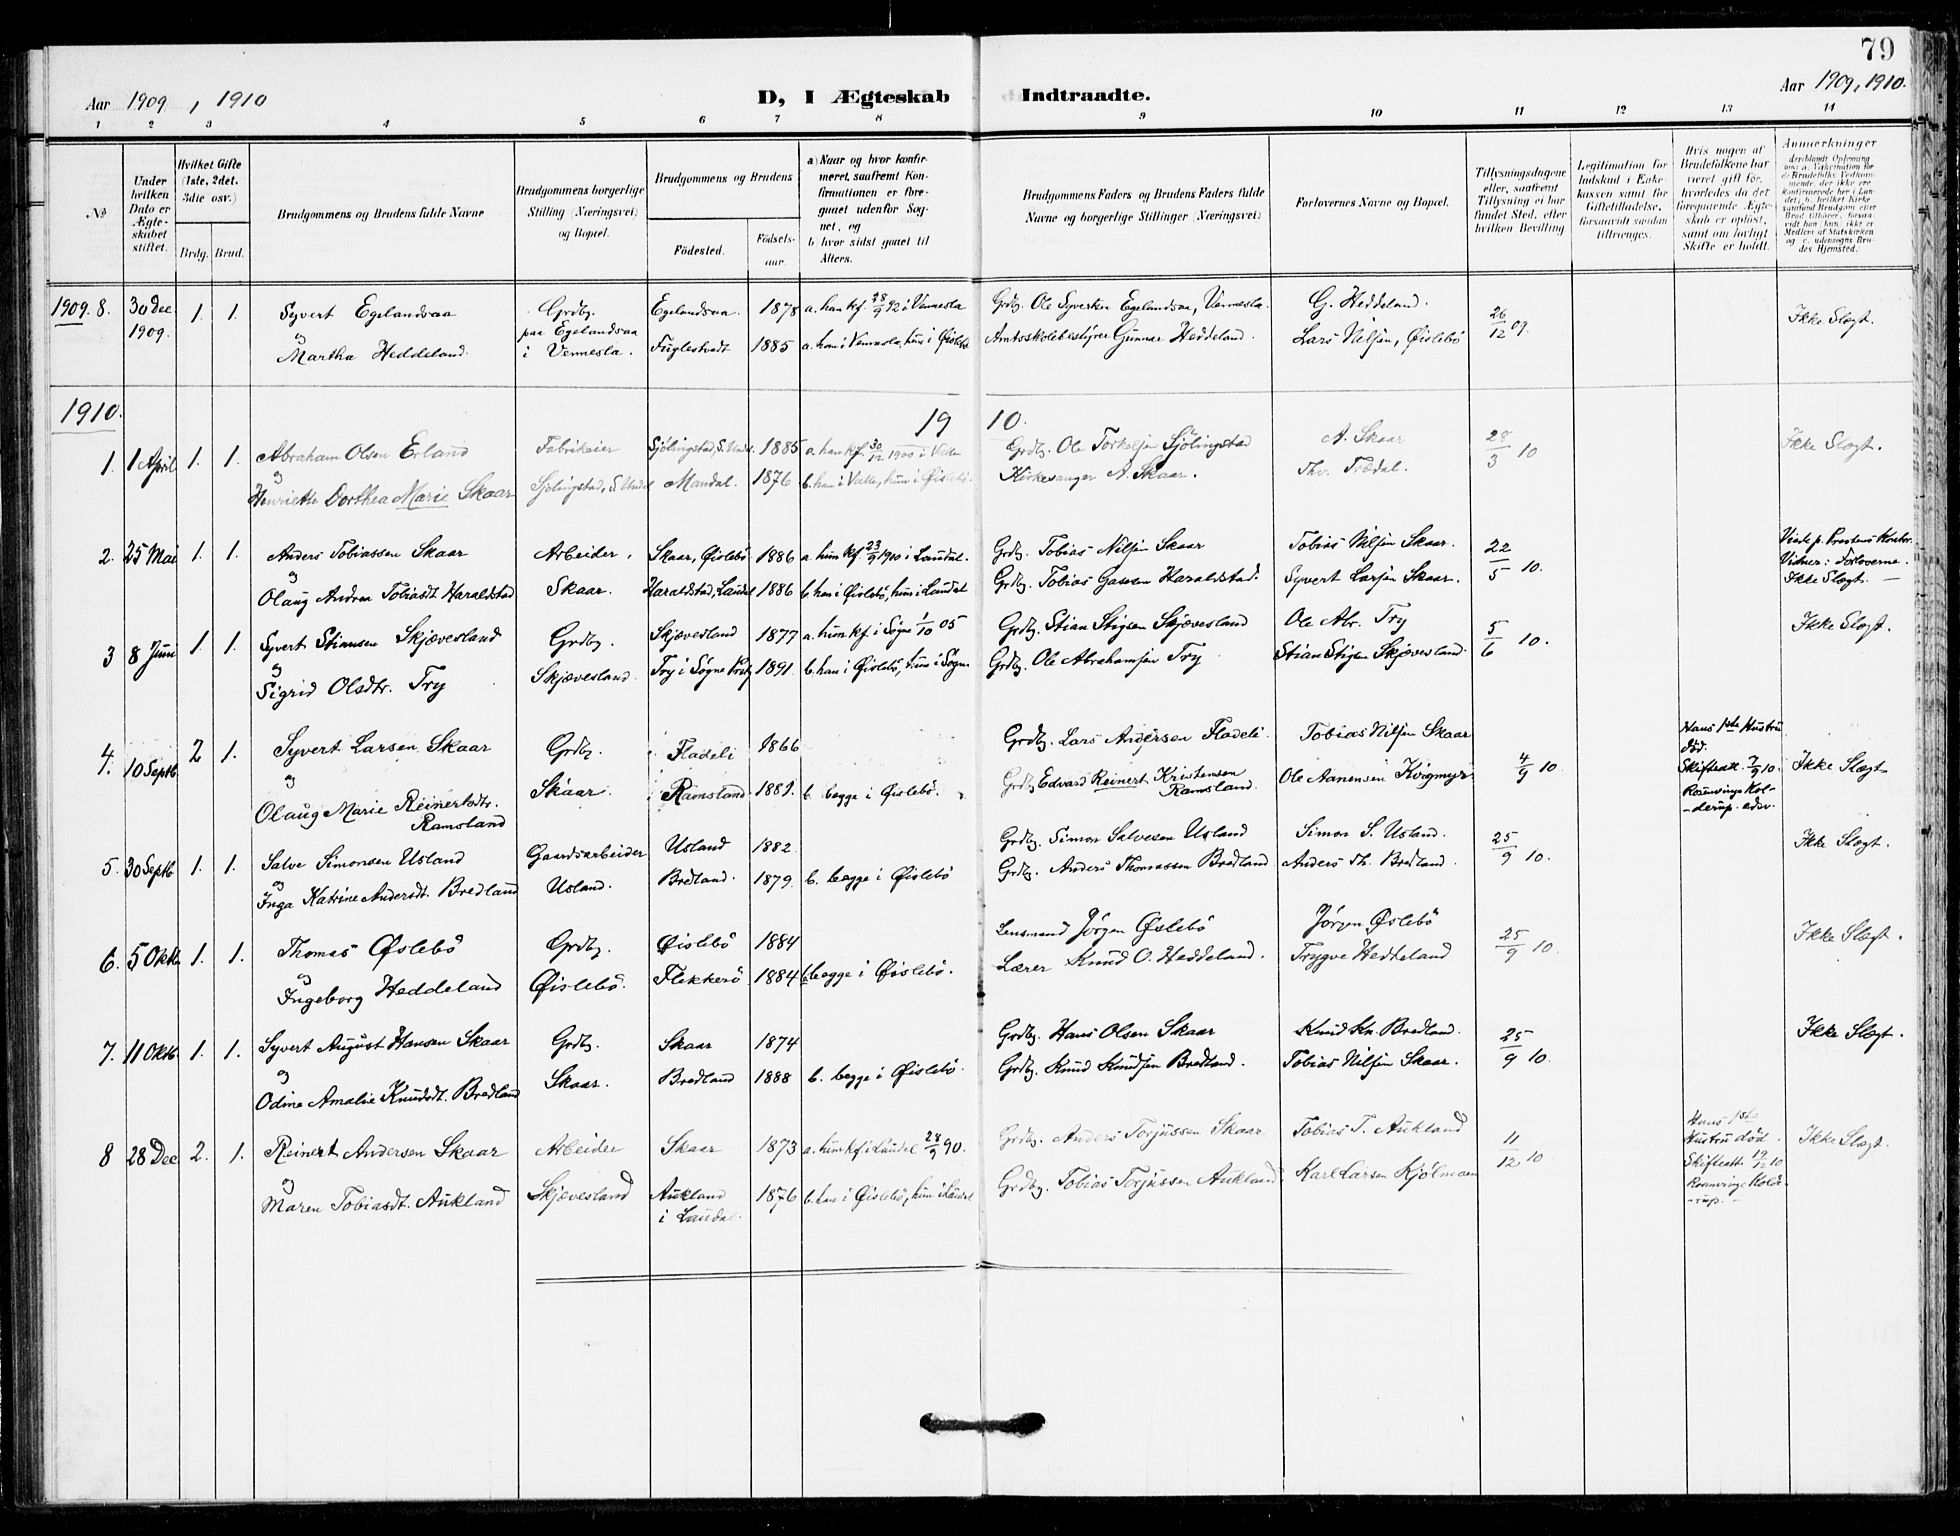 79
Aar 1909, 1910
D, I Ægteskab Indtraadte.
Aar 1909, 1910.
1 2 3 4 5 6 7 8 9 10 11 12 13 14
No
Under hvilken Dato er Ægteskabet stiftet.
Hvilket Gifte (1ste, 2det, 3die osv.)
Brdg. Brud.
Brudgommens og Brudens fulde Navne
Brudgommens borgerlige Stilling (Næringsvei) og Bopæl.
Brudgommens og Brudens
Födested.
Födselsaar.
a) Naar og hvor konfirmeret, saafremt Konfirmationen er foregaaet udenfor Sognet, og
b hvor sidst gaaet til Alters.
Brudgommens Faders og Brudens Faders fulde Navne og borgerlige Stillinger (Næringsvei)
Forlovernes Navne og Bopæl.
Tillysningsdagene eller, saafremt Tillysning ei har fundet Sted, efter hvilken Bevilling.
Legitimation for Indskud i Enkekassen samt for Giftetilladelse, forsaavidt saadan tiltrænges.
Hvis nogen af Brudefolkene har været gift før, hvorledes da det foregaaende Ægteskab er opløst, samt om lovligt Skifte er holdt.
Anmerkninger
1909. 8. 30 Dec 1909. 1. 1. Syvert Egelandsaa Grdbg. Egelandsaa. 1878 a. han kf. 28/9 92 i Vennesla Grdbg. Ole Syvertsen Egelandsaa, Vennesla. G. Heddeland. 26/12 09. Ikke Slægt.
og paa Egelandsaa
Martha Heddeland. i Vennesla. Fuglestvedt 1885 a. han i Vennesla, hun i Øislebö Amtsskolebestyrer Gunnar Heddeland. Lars Nilsen, Øislebö
1910. 1910.
1. 1 April 1. 1. Abraham Olsen Erland Fabrikeier Sjölingstad, S. Undal 1885 a. han kf. 30/12 1900 i Valle Grdbg. Ole Torkelsen Sjölingstad A. Skaar 28/3 10 Ikke Slægt.
og
Henriette Dorthea Marie Skaar Sjölingstad, S. Undal Mandal. 1876 b. han i Valle, hun i Øislebö. Kirkesanger A. Skaar. Thv. Trædal.
2. 25 Mai 1. 1. Anders Tobiassen Skaar Arbeider. Skaar, Øislebö 1886 a. hun kf. 23/9 1900 i Laudal. Grdbg. Tobias Nilsen Skaar Tobias Nilsen Skaar. 22/5 10. Viede p. Prestens Kontor. Vidner: Forloverne. Ikke Slægt.
og
Olaug Andrea Tobiasdt. Haraldstad Skaar. Haraldstad, Laudal 1886 b. han i Øislebö, hun i Laudal Grdbg. Tobias Gassen Haraldstad. Syvert Larsen Skaar.
3 8 Juni 1. 1. Syvert Stiansen Skjævesland Grdbg. Skjævesland 1877 a. hun kf. i Søgne 1/10 05 Grdbg. Stian Stigsen Skjævesland Ole Abr. Try 5/6 10. Ikke Slægt.
og
Sigrid Olsdtr. Try Skjævesland. Try i Søgne Prstg 1891. b. han i Øislebö, hun i Søgne Grdbg. Ole Abrahamsen Try Stian Stigsen Skjævesland.
4. 10 Septb. 2 1. Syvert Larsen Skaar Grdbg. Fladeli 1866 Grdbg. Lars Andersen Fladeli Tobias Nilsen Skaar 4/9 10. Hans 1ste Hustru død. Skifteatt. 7/9 10. Rosenvinge Kolderup. edsv. Ikke Slægt
og
Olaug Marie Reinertsdtr. Ramsland Skaar. Ramsland 1881. b. begge i Øislebö. Grdbg. Edvard Reinert Kristensen Ramsland. Ole Aanensen Kvigmyr
5. 30 Septb 1. 1. Salve Simonsen Usland Gaardsarbeider Usland 1882. Grdbg. Simon Salvesen Usland Simon S. Usland. 25/9 10. Ikke Slægt.
og
Inga Katrine Andersdt. Bredland Usland. Bredland. 1879. b. begge i Øislebö Grdbg. Anders Thomassen Bredland Anders Th. Bredland.
6. 5 Oktb 1. 1. Thomas Øslebö Grdbg. Øislebö 1884 Lensmand Jørgen Øslebö Jørgen Øslebö 25/9 10. Ikke Slægt.
og
Ingeborg Heddeland Øislebö. Flekkerö 1884 b. begge i Øislebö. Lærer Knud O. Heddeland. Trygve Heddeland
7. 11 Oktb. 1. 1. Syvert August Hansen Skaar Grdbg. Skaar 1874 Grdbg. Hans Olsen Skaar Knud Kn. Bredland. 25/9 10. Ikke Slægt.
og
Odine Amalie Knudsdt. Bredland Skaar. Bredland 1888 b. begge i Øislebö. Grdbg. Knud Knudsen Bredland. Tobias Nilsen Skaar.
8 28 Dec 2. 1. Reinert Andersen Skaar Arbeider Skaar 1873 a. hun kf. i Laudal 28/9 90. Grdbg. Anders Torjussen Skaar Tobias T. Aukland 11/12 10 Hans 1ste Hustru död. Skifteatt. 19/12 10 Rosenvinge Kolderup. Ikke Slægt.
og
Maren Tobiasdt. Aukland Skjævesland Aukland i Laudal. 1876 b. han i Øislebö, hun i Laudal Grdbg. Tobias Torjussen Aukland Karl Larsen Kjölmoen